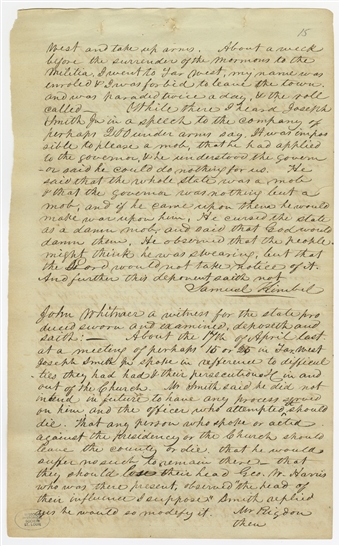 15
West and take up arms. About a week
before the surrender of the Mormons to the
Militia, I went to Far West, my name was
enroled & I was forbid to leave the town.
and was paraded twice a day, & the roll
called — While there I heard Joseph
Smith Jr in a speech to the company of
perhaps 200 under arms say. It was impos
sible to please a mob, that he had applied
to the governor, & he understood the govern
-or said he could do nothing for us. He
said that the whole state was a mob
& that the Governor was nothing but a
mob, and if he came upon them he would
make war upon him. He cursed the state
as a damn mob, and said that God would
damn them. He observed that the people
might think he was swearing, but that
the Lord would not take notice of it.
And further this deponent saith not
Samuel Kimbel
John Whitmer a witness for the state pro
duced sworn and examined, deposeth and
saith: — About the 17th of April last
at a meeting of perhaps 15 or 25 in Far West
Joseph Smith Jr spoke in reference to difficul
ties they had had & their persecutions &c in and
out of the Church. Mr Smith said he did not
intend in future to have any process served
on him and the officer who attempted should
die. that any person who spoke or acted
against the Presidency or the Church should
leave the country or die. that he would
suffer no such to remain there that
they should lose their head Geo. W. Harris
who was there present, observed the head of
their influence I suppose & Smith replied
yes he would so modify it. Mr Rigdon
then